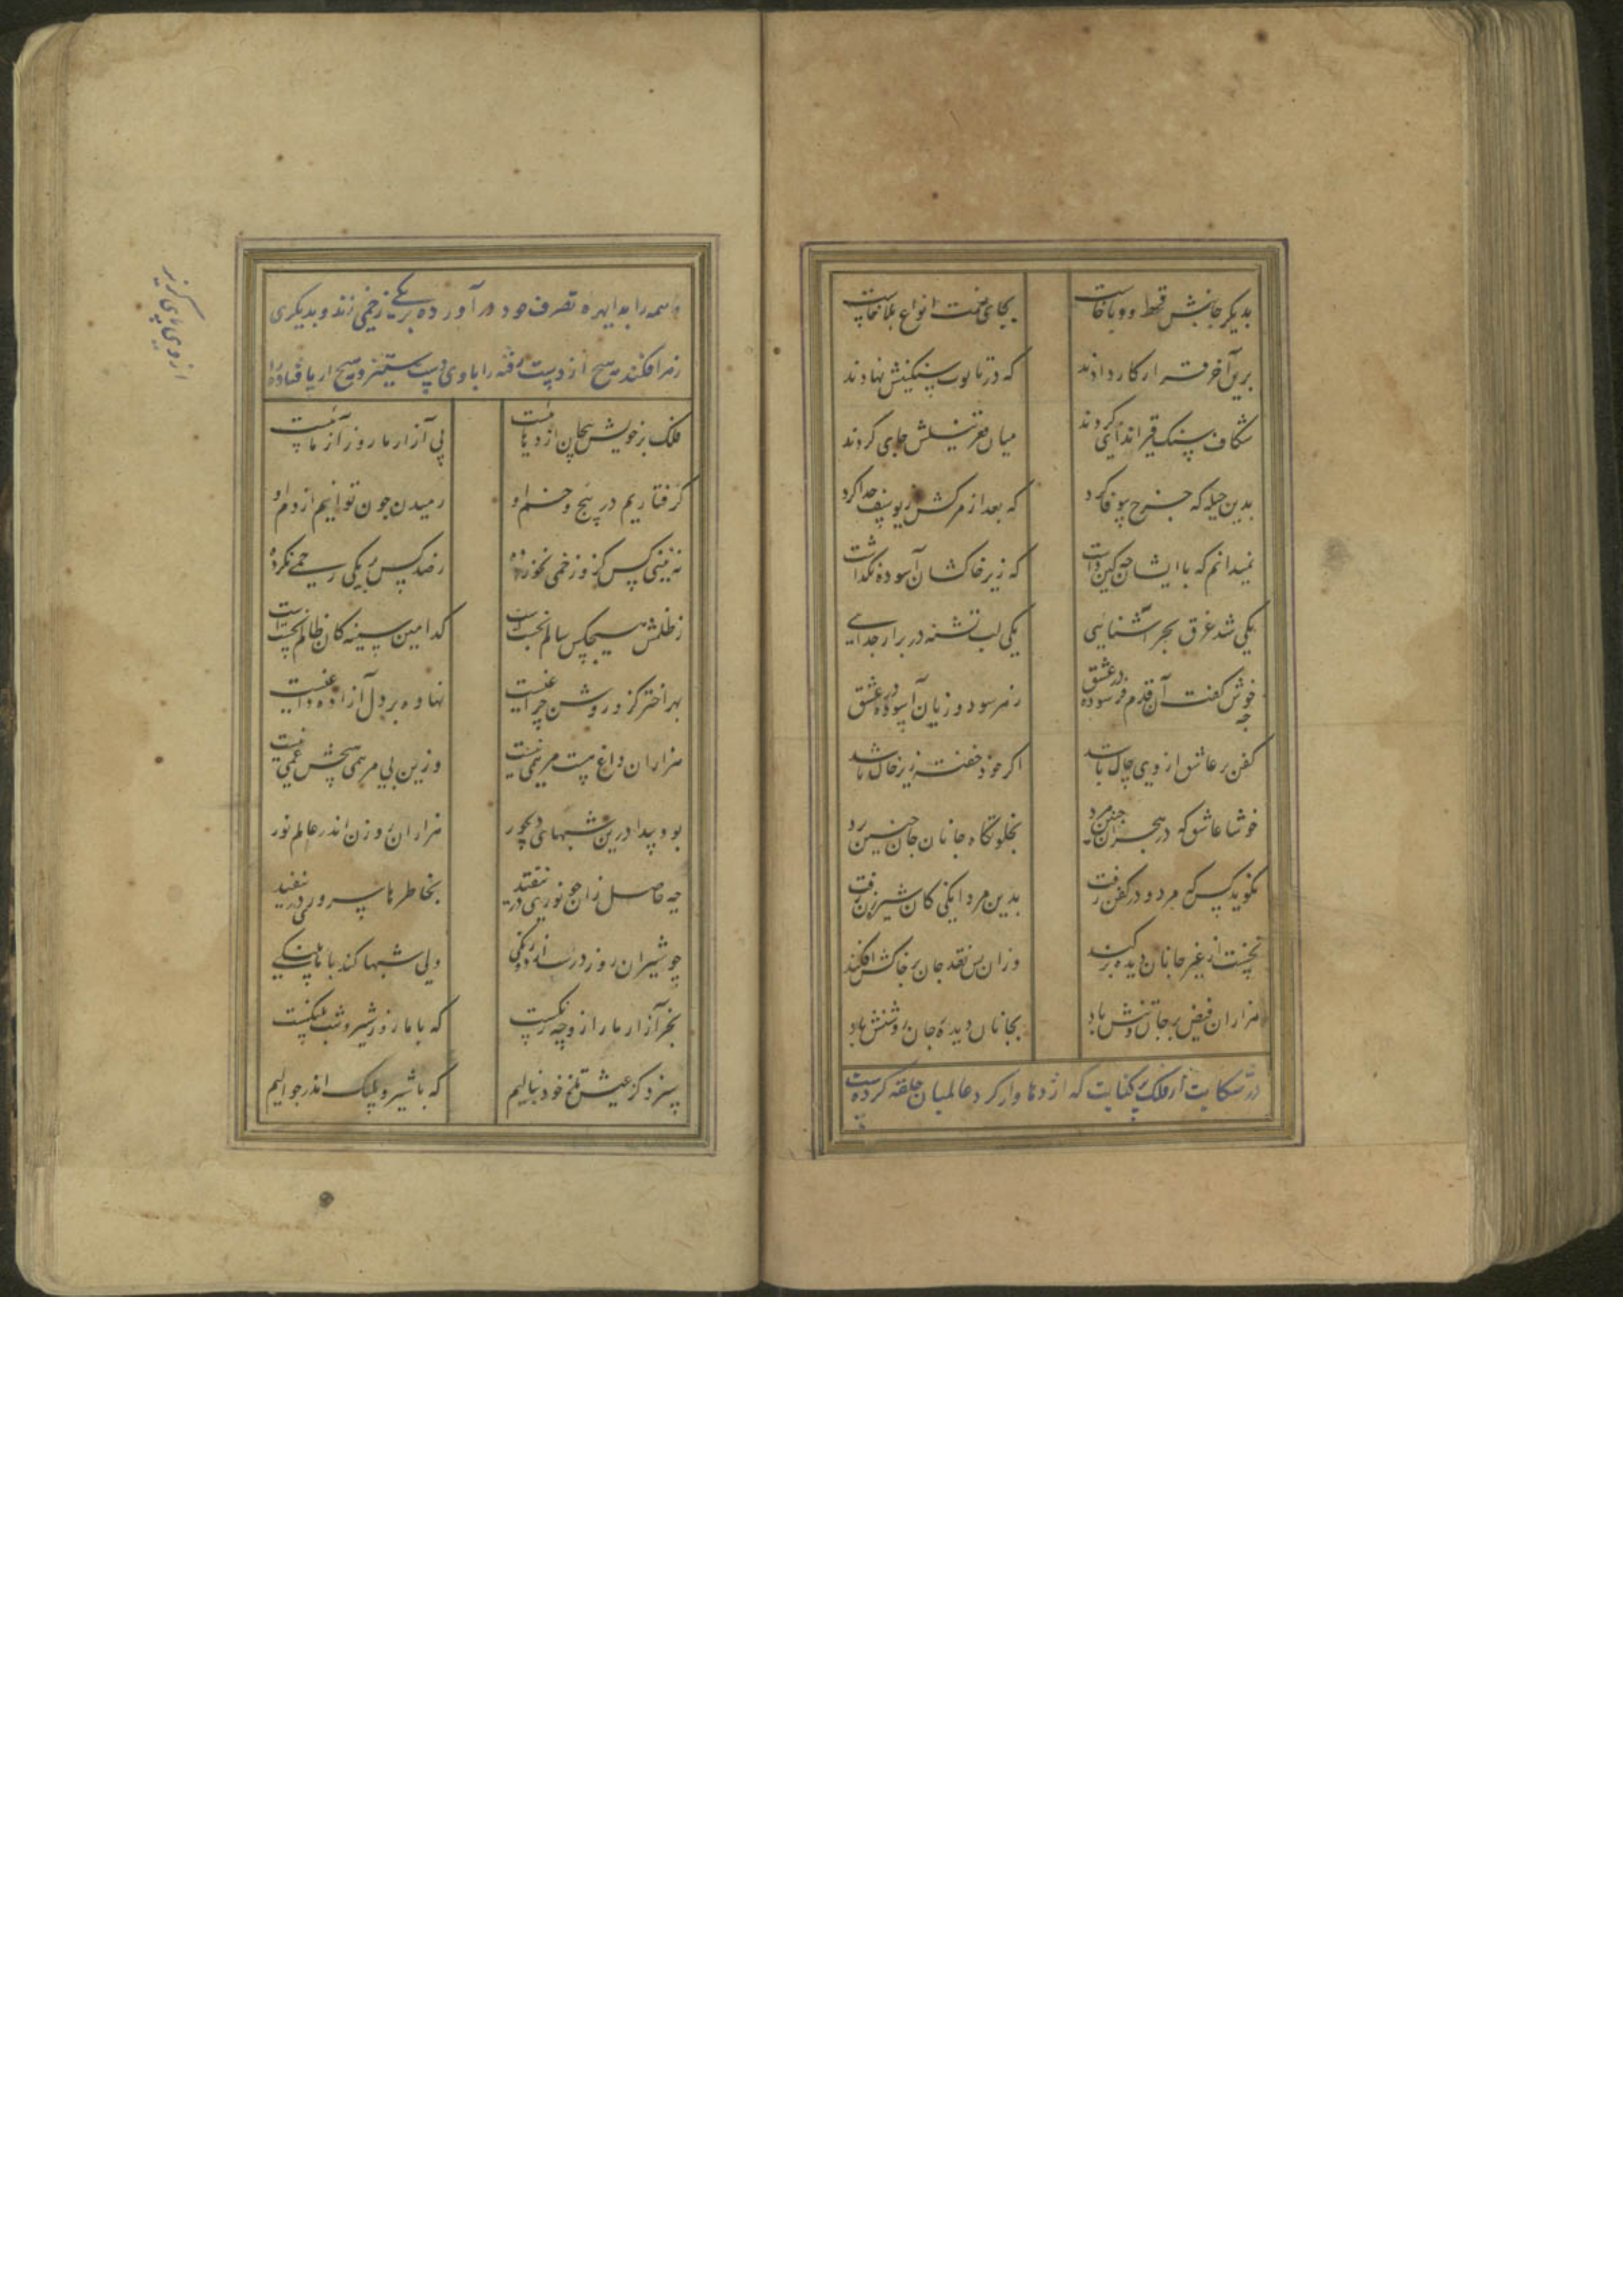 بدیکر جانبش قحط و وبا خاست بجای نعمت انواع بلا خاست
برین آخر قرار کار دادند که در تابوت سنکینش نهادند
شکاف سنک قیر اندای کردند میان قعر نیلش جای کردند
بدین حیله که چرخ بیوفا کرد که بعد از مرکش از یوسف جدا کرد
نمیدانم که با ایشان چه کین داشت که زیر خاکشان آسوده نکذاشت
یکی شد غرق بحر آشنایی یکی لب تشنه در بر جدایی
چه خوش کفت آن قدم فرسوده در عشق ز هر سود و زیان آسوده در عشق
کفن بر عاشق از وی چاک باشد اکر خود خفته زیر خاک باشد
خوشا عاشق که در هجران چنین مرد بخلوتکاه جانان جان چنین برد
نکوید کس که مرد و در کفن رفت بدین مردانکی کان شیرزن رفت
نخست از غیر جانان دیده بر کند وزان پس نقد جان بر خاکش افکند
هزاران فیض بر جان و تنش باد بجانان دیده جان روشنش باد
در شکایت از فلک پر نکایت که اژدهاوار کرد عالمیان حلقه کرده است
و همه را بدایره تصرف خود در آورده بر یکی زخمی زند و بدیکری
زهر افکند هیچ از دست رفته را با وی دست ستیز و هیچ از پا فتاده را
فلک بر خویش پیچان اژدهاست پی آزار ما زورآزماست
کرفتاریم در پیچ و خم او رمیدن چون توانیم از دم او
نه بینی کس کزو زخمی نخورده ز صد کس بر یکی رحمی نکرده
ز ظلمش هیچکس سالم نجستست کدامین سینه کان ظالم نخستست
بهر اختر کزو روشن چراغیست نهاده بر دل آزاده داغیست
هزاران داغ هست مرهمی نیست وزین بی مرهمی هیچش غمی نیست
بود پیدا درین شبهای دیجور هزاران روزن اندر عالم نور
چه حاصل زان چو نوری در نیفتد بخاطرها سروری در نیفتد
چو شیران روز در سازد دورنکی ولی شبها کند با ما پلنکی
بجز آزار ما را زو چه رنکست که با ما روز شیر و شب پلنکست
سزد کز عیش تلخ خود بنالیم که با شیر و پلنک اندر جوالیم
از وی پای کریز